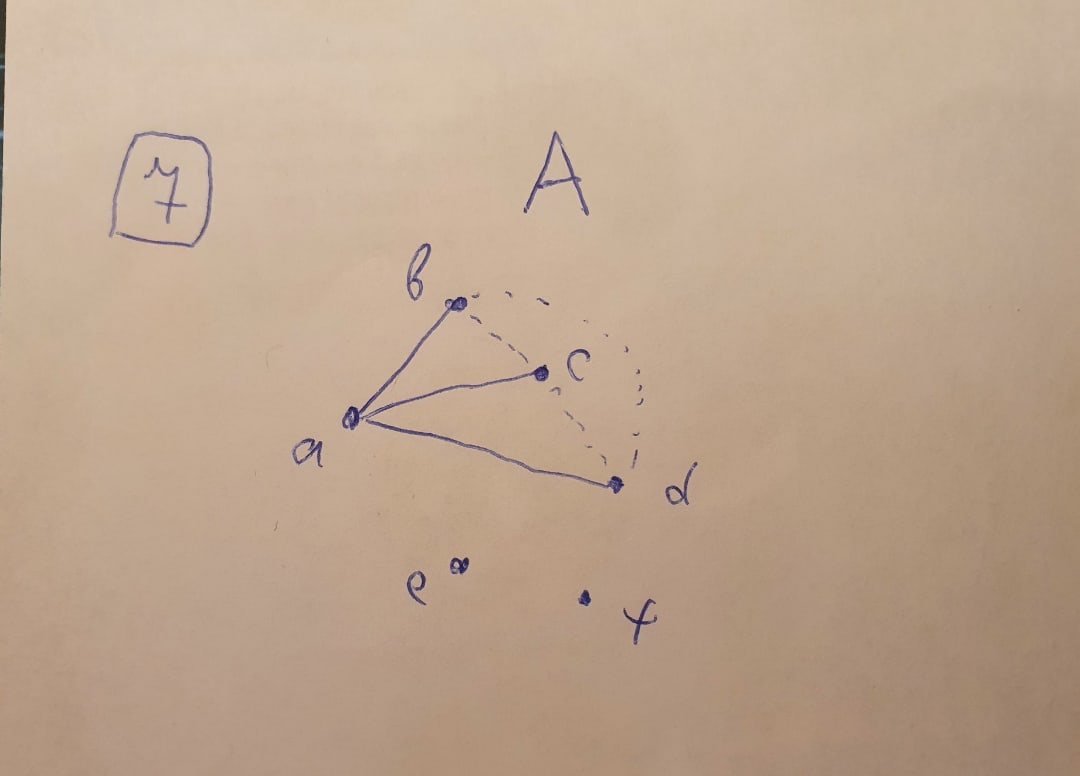 7
A
b
c
a
d
e
f